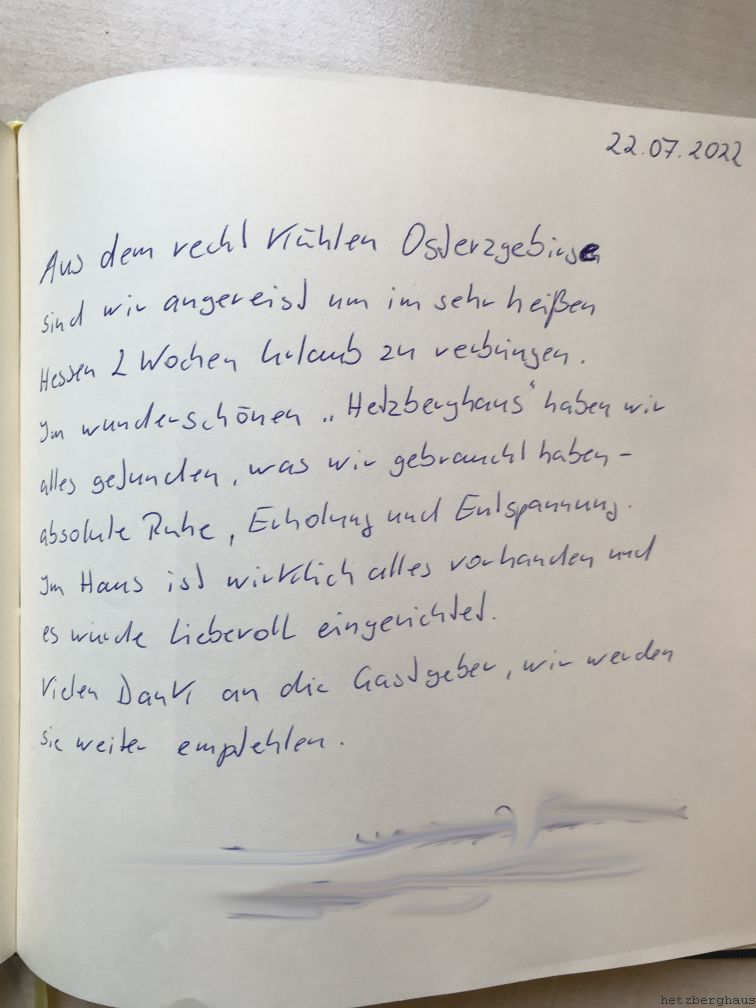 22.07.2022
Aus dem recht kühlen Osterzgebirge
sind wir angereist um im sehr heißen
Hessen 2 Wochen Urlaub zu verbringen.
Im wunderschönen „Hetzberghaus“ haben wir
alles gefunden, was wir gebraucht haben -
absolute Ruhe, Erholung und Entspannung.
Im Haus ist wirklich alles vorhanden und
es wurde liebevoll eingerichtet.
Vielen Dank an die Gastgeber, wir werden
sie weiter empfehlen.
hetzberghaus